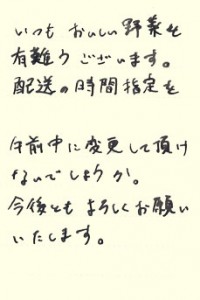 いつも おいしい野菜を
有難うございます。
配送の時間指定を
午前中に変更して頂け
ないでしようか。
今後とも よろしくお願い
いたします。